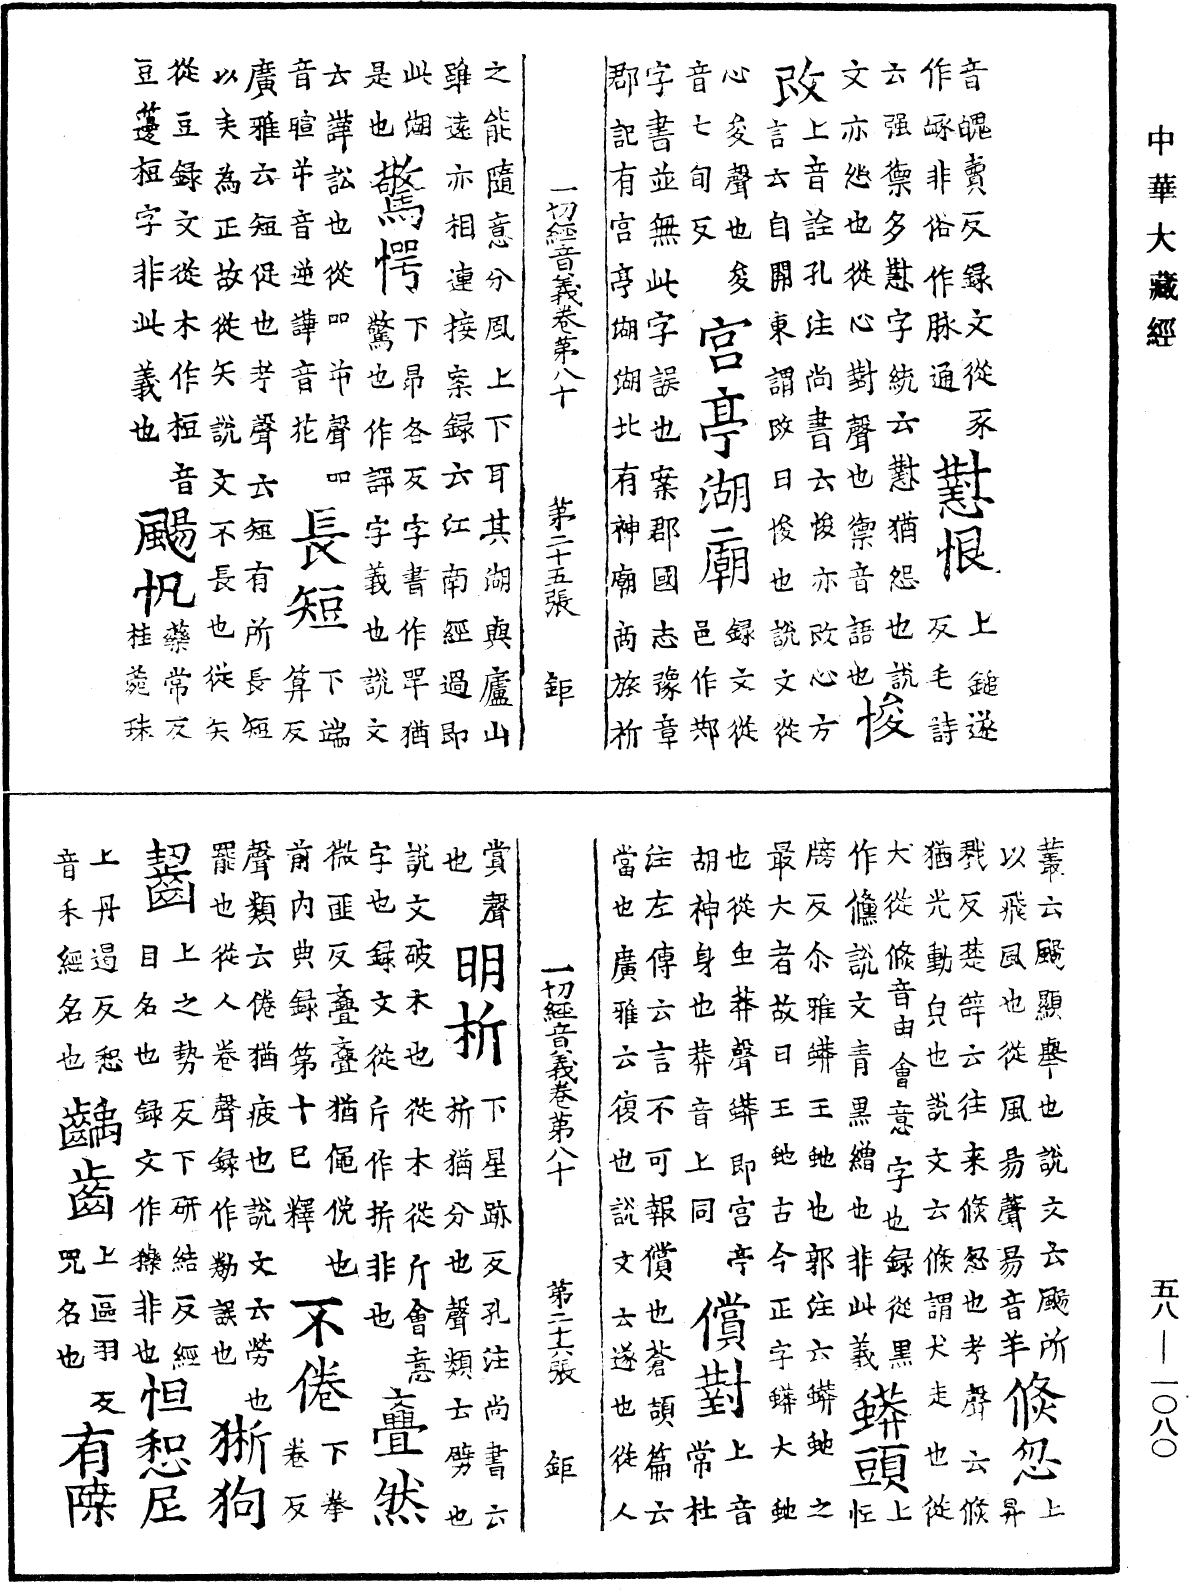 中華大藏經
音䰠賣反錄文從豕
作𧱓非俗作脉通
懟恨
上鎚遂反毛詩
云强禦多懟字統云懟猶怨也說
文亦怨也從心對聲也禦音語也
悛改
上音詮孔注尚書云悛亦改心方
言云自關東謂改曰悛也說文從
心夋聲也夋
音七旬反
宫亭湖廟
錄文從邑作䣙
字書並無此字誤也案郡國志豫章
郡記有宫亭湖湖北有神廟商旅祈
一切經音義卷第八十 第二十五張 鉅
之能隨意分風上下耳其湖與廬山
雖遠亦相連接案録云江南經過即
此湖是也
驚愕
下昂各反字書作咢猶
驚也作諤字義也說文
云譁訟也從吅屰聲吅
音暄屰音逆譁音花
長短
下端算反
廣雅云短促也考聲云短有所長短
以夫為正故從矢說文不長也從矢
從豆錄文從木作桓音
豆籩桓字非此義也
颺帆
藥常反
桂苑珠
叢云颺顯舉也說文云颺所
以飛風也從風昜聲昜音羊
倏忽
上昇
戮反楚辭云往来倏忽也考聲云倏
猶光動皃也說文云倏謂犬走也從
犬從倏音由會意字也録從黑
作儵說文青黑繒也非此義
蟒頭
上忙
牓反尒雅蟒王虵也郭注云蟒虵之
最大者故曰王虵古今正字蟒大虵
也從虫莽聲蟒即宫亭
胡神身也莽音上同
償對
上音常杜
注左傳云言不可報償也蒼頡篇云
當也廣雅云復也說文云遂也從人
一切經音義卷第八十 第二十六張 鉅
賞聲也
明析
下星跡反孔注尚書云
析猶分也聲類云劈也
說文破木也從木從斤會意
字也録文從斤作折非也
亹然
微匪反亹亹猶僶俛也
前內典錄第十已釋
不倦
下拳卷反
聲類云倦猶疲也說文云勞也
罷也從人卷聲錄作勌誤也
狾狗
上之勢反下研結反經
齧
目名也録文作獠非也
怛惒尼
上丹遏反惒
音禾經名也
齲齒
上區羽反
呪名也
有隙
五八—一〇八〇